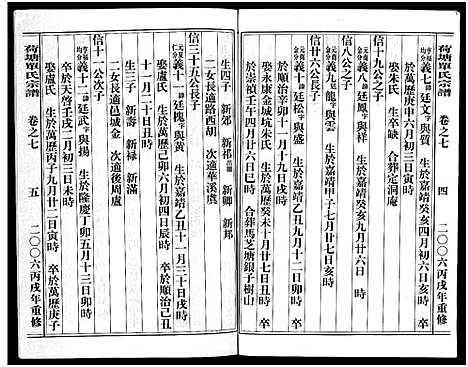 荷塘單氏宗譜 卷之七 四 二〇〇六丙戌年重修
義七 諱廷文 字與質 生於嘉靖癸亥四月初六日亥時 卒
於萬歷庚申六月初三日寅時
娶朱氏 生卒缺 合葬定洞庵
信十九公之子
義八 諱廷鳳 字與祥 生於嘉靖癸亥九月廿六日
信八公之子
義九 諱廷龍 字與雲 生於嘉靖甲子七月廿八日卯時
信廿六公長子
義十 諱廷松 字與嵩 生於嘉靖乙丑九月十二日丑時 卒
於順治辛卯十一月十九日戌時
娶永康金城坑朱氏 生於萬歷癸未十月廿七日丑時 卒
於崇禎壬午四月廿六日巳時 合葬馬芝塘銀子樹山
生四子 新郊 新祁 新卿 新邦
二女長適路西胡 次適華溪虞
信三十五公長子
義十一 諱廷槐 字與黃 生於嘉靖乙丑十一月三十日戌時
娶盧氏 生於萬歷己卯六月初四日辰時 卒於順治己丑
十一月二十日戌時
生三子 新壽 新祿 新滿
二女長適邑城金 次適後周盧
信十一公次子
義十二 諱廷武 字與揚 生於隆慶丁卯五月十三日卯時
卒於天啓辛酉十二月初三日未時
娶盧氏 生於萬歷丙子九月廿二日寅時 卒於萬歷庚子
荷塘單氏宗譜 卷之七 五 二〇〇六丙戌年重修